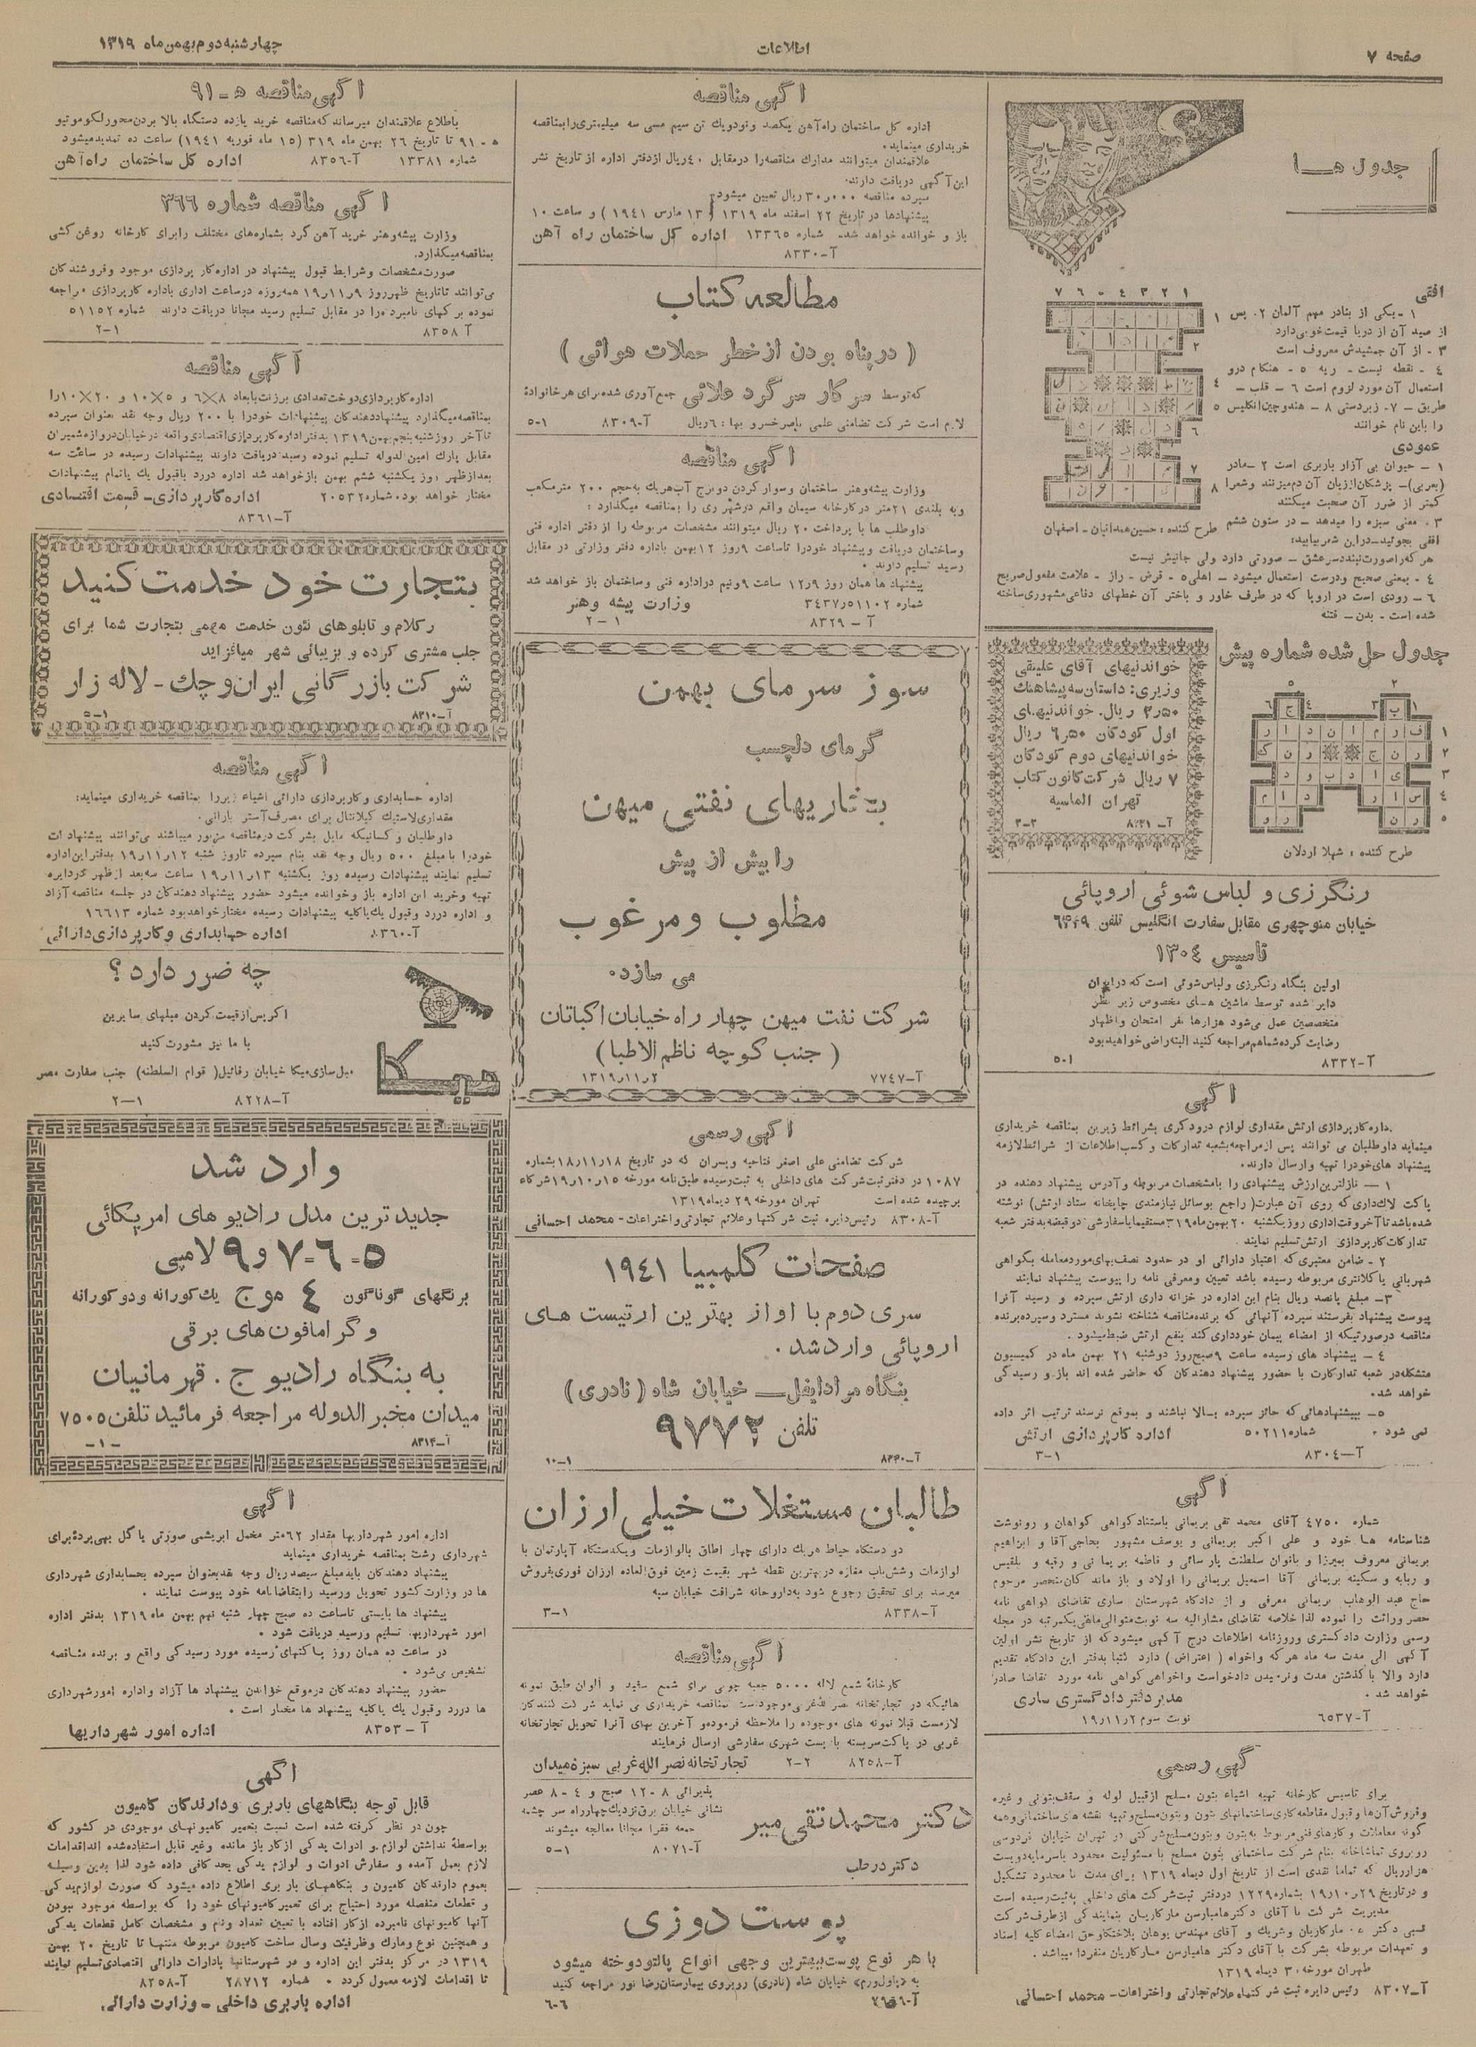 صفحه ۷
اطلاعات
چهارشنبه دوم بهمن ماه ۱۳۱۹
جدول هــا
افقی
۱ - یکی از بنادر مهم آلمان ۲. پس
از صید آن از دریا قیمت خوبی دارد
۳ - از آن جمشیدش معروف است
۴ - نقطه نیست - ریه ۵ - هنگام درو
استعمال آن مورد لزوم است ۶ - قلب -
طریق - ۷- زبردستی ۸ - هندوچین انگلیس
را باین نام خوانند
عمودی
۱ - حیوان بی آزار باربری است ۲ - مادر
(بعربی) - پزشکان از زیان آن دم میزنند وشعرا
کمتر از ضرر آن صحبت میکنند
۳ - معنی سبزه را میدهد - در ستون ششم
طرح کننده: حسین همدانیان - اصفهان
افقی بجوئید - دراین شعر بیابید:
هر که را صورت نبندد سر عشق - صورتی دارد ولی جانیش نیست
۴ - بمعنی صحیح ودرست استعمال میشود - اهلی ۵ - قرض - راز - علامت مفعول صریح
۶ - رودی است در اروپا که در طرف خاور و باختر آن خطهای دفاعی مشهوری ساخته
شده است - بدن - فتنه
جدول حل شده شماره پیش
طرح کننده: شهلا اردلان
خواندنیهای آقای علینقی
وزیری: داستان سه پیشاهنگ
۲٫۵۰ ریال. خواندنیهای
اول کودکان ۶٫۵۰ ریال
خواندنیهای دوم کودکان
۷ ریال شرکت کانون کتاب
تهران الماسیه
رنگرزی و لباس شوئی اروپائی
خیابان منوچهری مقابل سفارت انگلیس تلفن ۶۴۴۹
تاسیس ۱۳۰۴
اولین بنگاه رنگرزی ولباس شوئی است که در ایران
دایر شده توسط ماشین های مخصوص زیر نظر
متخصصین عمل می‌شود هزارها نفر امتحان واظهار
رضایت کرده شما هم مراجعه کنید البته راضی خواهید بود
آ-۸۳۳۲ ۱-۵
آگهی
اداره کارپردازی ارتش مقداری لوازم درودگری بشرائط زیرین بمناقصه خریداری
مینماید داوطلبان می توانند پس از مراجعه بشعبه تدارکات وکسب اطلاعات از شرائط لازمه
پیشنهاد های خودرا تهیه وارسال دارند.
۱ - نازلترین ارزش پیشنهادی را بامشخصات مربوطه وآدرس پیشنهاد دهنده در
پاکت لاک داری که روی آن عبارت (راجع بوسائل نیازمندی چاپخانه ستاد ارتش) نوشته
شده باشد تا آخر وقت اداری روز یکشنبه ۲۰ بهمن ماه ۳۱۹ مستقیما یا سفارشی دو قبضه بدفتر شعبه
تدارکات کارپردازی ارتش تسلیم نمایند.
۲ - ضامن معتبری که اعتبار دارائی او در حدود نصف بهای مورد معامله بگواهی
شهربانی یا کلانتری مربوطه رسیده باشد تعیین ومعرفی نامه را پیوست پیشنهاد نمایند
۳ - مبلغ پانصد ریال بنام این اداره در خزانه داری ارتش سپرده و رسید آنرا
پیوست پیشنهاد بفرستند سپرده آنهائی که برنده مناقصه شناخته نشوند مسترد وسپرده برنده
مناقصه درصورتیکه از امضاء پیمان خودداری کند بنفع ارتش ضبط میشود.
۴ - پیشنهاد های رسیده ساعت ۹ صبح روز دوشنبه ۲۱ بهمن ماه در کمیسیون
متشکله در شعبه تدارکات با حضور پیشنهاد دهندگان که حاضر شده اند باز و رسیدگی
خواهد شد.
۵ - بپیشنهادهائی که حائز سپرده بالا نباشند و بموقع نرسند ترتیب اثر داده
نمی شود. شماره ۵۰۲۱۱ اداره کارپردازی ارتش
آ-۸۳۰۴ ۱-۳
آگهی
شماره ۴۷۵۰ آقای محمد تقی بریمانی باستناد گواهی گواهان و رونوشت
شناسنامه ها خود و علی اکبر بریمانی و یوسف مشهور بحاجی آقا و ابراهیم
بریمانی معروف بمیرزا و بانوان سلطنت پارسائی و فاطمه بریمانی و رقیه و بلقیس
و ربابه و سکینه بریمانی آقا اسمعیل بریمانی را اولاد و باز ماندگان منحصر مرحوم
حاج عبد الوهاب بریمانی معرفی و از دادگاه شهرستان ساری تقاضای گواهی نامه
حصر وراثت را نموده لذا خلاصه تقاضای مشارالیه سه نوبت متوالی ماهی یکمرتبه در مجله
رسمی وزارت دادگستری وروزنامه اطلاعات درج آگهی میشود که از تاریخ نشر اولین
آگهی الی مدت سه ماه هر که واخواه (اعتراض) دارد کتبا بدفتر این دادگاه تقدیم
دارد والا با گذشتن مدت ونرسیدن دادخواست واخواهی گواهی نامه مورد تقاضا صادر
خواهد شد. مدیر دفتر دادگستری ساری
آ-۶۵۳۷ نوبت سوم ۱۹٫۱۱٫۲
آگهی رسمی
برای تاسیس کارخانه تهیه اشیاء بتون مسلح از قبیل لوله و سقف بتونی و غیره
وفروش آن‌ها وقبول مقاطعه کاری ساختمانهای بتون وبتون مسلح وتهیه نقشه های ساختمانی وهمه
گونه معاملات وکارهای فنی مربوط به بتون وبتون مسلح شرکتی در تهران خیابان فردوسی
روبروی تماشاخانه بنام شرکت ساختمانی بتون مسلح با مسئولیت محدود باسرمایه دویست
هزار ریال که تماما نقدی است از تاریخ اول دیماه ۱۳۱۹ برای مدت نا محدود تشکیل
و در تاریخ ۲۹ر۱۰ر۱۹ بشماره ۱۲۲۹ در دفتر ثبت شرکت های داخلی به ثبت رسیده است
مدیریت شرکت با آقای دکتر هامبارسن مارکاریان بنمایندگی از طرف شرکت
و تعهدات مربوطه بشرکت با آقای دکتر هامبارسن مارکاریان منفردا میباشد.
طهران مورخه ۳۰ دیماه ۱۳۱۹
آ-۸۳۰۷ رئیس دایره ثبت شرکتها و علائم تجارتی و اختراعات - محمد احسانی
آگهی مناقصه
اداره کل ساختمان راه آهن یکصد ونودویک تن سیم مسی سه میلیمتری را بمناقصه
خریداری مینماید.
علاقمندان میتوانند مدارک مناقصه را در مقابل ۴۰ ریال از دفتر اداره از تاریخ نشر
این آگهی دریافت دارند.
سپرده مناقصه ۳۰٫۰۰۰ ریال تعیین میشود
پیشنهادها در تاریخ ۲۲ اسفند ماه ۱۳۱۹ (۱۳ مارس ۱۹۴۱) و ساعت ۱۰
باز و خوانده خواهد شد. شماره ۱۳۳۶۵ اداره کل ساختمان راه آهن
آ-۸۳۳۰
مطالعه کتاب
(در پناه بودن از خطر حملات هوائی)
که توسط سرکار سرگرد علائی جمع آوری شده برای هر خانوادهٔ
لازم است شرکت تضامنی علمی ناصرخسرو بها: ۶ ریال آ-۸۳۰۹ ۱-۵
آگهی مناقصه
وزارت پیشه وهنر ساختمان وسوار کردن دو برج آب هریک به حجم ۲۰۰ متر مکعب
وبه بلندی ۲۱ متر در کارخانه سیمان واقع در شهر ری را بمناقصه میگذارد:
داوطلب ها با پرداخت ۲۰ ریال میتوانند مشخصات مربوطه را از دفتر اداره فنی
وساختمان دریافت وپیشنهاد خودرا تاساعت ۹ روز ۱۲ بهمن باداره دفتر وزارتی در مقابل
رسید تسلیم دارند.
پیشنهاد ها همان روز ۱۲ر۹ ساعت ۹ونیم در اداره فنی وساختمان باز خواهد شد
شماره ۳۴۳۷ر۵۱۱۰۲ وزارت پیشه وهنر
آ-۸۳۲۹ ۱-۲
سوز سرمای بهمن
گرمای دلچسب
بخاریهای نفتی میهن
را بیش از پیش
مطلوب و مرغوب
می سازد.
شرکت نفت میهن چهار راه خیابان اکباتان
(جنب کوچه ناظم الاطبا)
آ-۷۷۴۷ ۱۳۱۹ر۱۱ر۲
آگهی رسمی
شرکت تضامنی علی اصغر فتاحیه و پسران که در تاریخ ۱۸ر۱۱ر۱۸ بشماره
۱۰۸۷ در دفتر ثبت شرکت های داخلی به ثبت رسیده طبق نامه مورخه ۱۵ر۱۰ر۱۹ شرکاء
برچیده شده است تهران مورخه ۲۹ دیماه ۱۳۱۹
آ-۸۳۰۸ رئیس دایره ثبت شرکتها و علائم تجارتی و اختراعات - محمد احسانی
صفحات کلمبیا ۱۹۴۱
سری دوم با آواز بهترین آرتیست های
اروپائی وارد شد.
بنگاه مرادایفل - خیابان شاه (نادری)
تلفن ۹۷۷۲
۱-۱۰
طالبان مستغلات خیلی ارزان
دو دستگاه حیاط هریک دارای چهار اطاق بالوازمات ویکدستگاه آپارتمان با
لوازمات وشش باب مغازه در بهترین نقطه شهر بقیمت زمین فوق العاده ارزان فوری بفروش
میرسد برای تحقیق رجوع شود به داروخانه شرافت خیابان سپه
آ-۸۳۳۸ ۱-۳
آگهی مناقصه
کارخانهٔ شمع لاله ۵۰۰۰ جعبه چوبی برای شمع سفید و الوان طبق نمونه
هائیکه در تجارتخانه نصراله غربی موجود است بمناقصه خریداری می نماید شرکت کنندگان
لازمست قبلا نمونه های موجوده را ملاحظه فرموده و آخرین بهای آنرا تحویل تجارتخانه
غربی در پاکت سربسته با پست شهری سفارشی ارسال فرمایند
آ-۸۲۵۸ ۲-۲ تجارتخانه نصرالله غربی سبزه میدان
دکتر محمد تقی میر
پذیرائی ۸-۱۲ صبح و ۴-۸ عصر
نشانی خیابان برق نزدیک چهارراه سر چشمه
جمعه فقرا مجانا معالجه میشوند
آ-۸۰۷۱ ۱-۵
دکتر در طب
پوست دوزی
با هر نوع پوست ببهترین وجهی انواع پالتو دوخته میشود
به «پاولورم» خیابان شاه (نادری) روبروی بیمارستان رضا نور مراجعه کنید
۶-۶
آگهی مناقصه ه-۹۱
باطلاع علاقمندان میرساند که مناقصه خرید یازده دستگاه بالا بردن محور لکوموتیو
ه-۹۱ تا تاریخ ۲۶ بهمن ماه ۳۱۹ (۱۵ ماه فوریه ۱۹۴۱) ساعت ده تمدید میشود
شماره ۱۳۳۸۱ آ-۸۳۵۶ اداره کل ساختمان راه آهن
آگهی مناقصه شماره ۳۶۶
وزارت پیشه وهنر خرید آهن گرد بشماره های مختلف را برای کارخانه روغن کشی
بمناقصه میگذارد.
صورت مشخصات وشرایط قبول پیشنهاد در اداره کار پردازی موجود وفروشندگان
می‌توانند تا تاریخ ظهر روز ۹ر۱۱ر۱۹ همه روزه در ساعت اداری باداره کارپردازی مراجعه
نموده برگهای نامبرده را در مقابل تسلیم رسید مجانا دریافت دارند. شماره ۵۱۱۵۲
آ-۸۳۵۸ ۱-۲
آگهی مناقصه
اداره کارپردازی دوخت تعدادی برزنت بابعاد ۸×۶ و ۵×۱۰ و ۲۰×۱۰ را
بمناقصه میگذارد پیشنهاد دهندگان پیشنهادات خودرا با ۲۰۰ ریال وجه نقد بعنوان سپرده
تا آخر روز شنبه پنجم بهمن ۱۳۱۹ بدفتر اداره کارپردازی اقتصادی واقعه در خیابان دروازه شمیران
مقابل پارک امین الدوله تسلیم نموده رسید دریافت دارند پیشنهادات رسیده در ساعت سه
بعدازظهر روز یکشنبه ششم بهمن باز خواهد شد اداره در رد یا قبول یک یا تمام پیشنهادات
مختار خواهد بود. شماره ۲۰۵۳۲ اداره کارپردازی - قسمت اقتصادی
آ-۸۳۶۱
بتجارت خود خدمت کنید
رکلام و تابلوهای نئون خدمت مهمی بتجارت شما برای
جلب مشتری کرده و بزیبائی شهر میافزاید
شرکت بازرگانی ایران و چک - لاله زار
آ-۸۳۱۰ ۱-۵
آگهی مناقصه
اداره حسابداری وکارپردازی دارائی اشیاء زیررا بمناقصه خریداری مینماید:
داوطلبان و کسانیکه مایل بشرکت در مناقصه مزبور میباشند می‌توانند پیشنهادات
خودرا بامبلغ ۵۰۰ ریال وجه نقد بنام سپرده تاروز شنبه ۱۲ر۱۱ر۱۹ بدفتر این اداره
تسلیم نمایند پیشنهادات رسیده روز یکشنبه ۱۳ر۱۱ر۱۹ ساعت سه بعد از ظهر در دایره
تهیه وخرید این اداره باز وخوانده میشود حضور پیشنهاد دهندگان در جلسه مناقصه آزاد
و اداره در رد وقبول یک یا کلیه پیشنهادات رسیده مختار خواهد بود شماره ۱۶۶۱۳
آ-۸۳۶۰ اداره حسابداری و کارپردازی دارائی
چه ضرر دارد؟
اگر پس از قیمت کردن مبلهای سایرین
با ما نیز مشورت کنید
میکا
مبل سازی میکا خیابان رفائیل (قوام السلطنه) جنب سفارت مصر
آ-۸۲۲۸ ۱-۲
وارد شد
جدید ترین مدل رادیو های امریکائی
۵-۶-۷ و ۹ لامپی
برنگهای گوناگون ۴ موج یک کورانه و دو کورانه
و گرامافون های برقی
به بنگاه رادیو ج. قهرمانیان
میدان مخبرالدوله مراجعه فرمائید تلفن ۷۵۰۵
آ-۸۳۱۴ -۱-
آگهی
اداره امور شهرداریها مقدار ۶۲ متر مخمل ابریشمی صورتی یا گل بهی پردهٔ برای
شهرداری رشت بمناقصه خریداری مینماید
پیشنهاد دهندگان باید مبلغ سیصد ریال وجه نقد بعنوان سپرده بحسابداری شهرداری
ها در وزارت کشور تحویل ورسید را بتقاضا نامه خود پیوست نمایند.
پیشنهاد ها بایستی تاساعت ده صبح چهار شنبه نهم بهمن ماه ۱۳۱۹ بدفتر اداره
امور شهرداریها تسلیم ورسید دریافت شود.
در ساعت ده همان روز پاکتهای رسیده مورد رسیدگی واقع و برنده مناقصه
تشخیص می‌شود.
حضور پیشنهاد دهندگان در موقع خواندن پیشنهاد ها آزاد واداره امور شهرداری
ها در رد وقبول یک یا کلیه پیشنهاد ها مختار است.
آ-۸۳۵۳ اداره امور شهرداریها
آگهی
قابل توجه بنگاههای باربری و دارندگان کامیون
چون در نظر گرفته شده است نسبت بتعمیر کامیونهای موجودی در کشور که
بواسطهٔ نداشتن لوازم و ادوات یدکی از کار باز مانده وغیر قابل استفاده شده اند اقدامات
لازم بعمل آمده و سفارش ادوات و لوازم یدکی بحد کافی داده شود لذا بدین وسیله
بعموم دارندگان کامیون و بنگاههای بار بری اطلاع داده میشود که صورت لوازم یدکی
و قطعات منفصله مورد احتیاج برای تعمیر کامیونهای خود را که بواسطه موجود نبودن
آنها کامیونهای نامبرده از کار افتاده با تعیین تعداد ونام و مشخصات کامل قطعات یدکی
و همچنین نوع ومارک وظرفیت وسال ساخت کامیون مربوطه منتها تا تاریخ ۲۰ بهمن
۱۳۱۹ در مرکز بدفتر این اداره و در شهرستانها بادارات دارائی اقتصادی تسلیم نمایند
تا اقدامات لازمه معمول گردد. شماره ۲۸۷۱۲ آ-۸۲۵۸
اداره باربری داخلی - وزارت دارائی